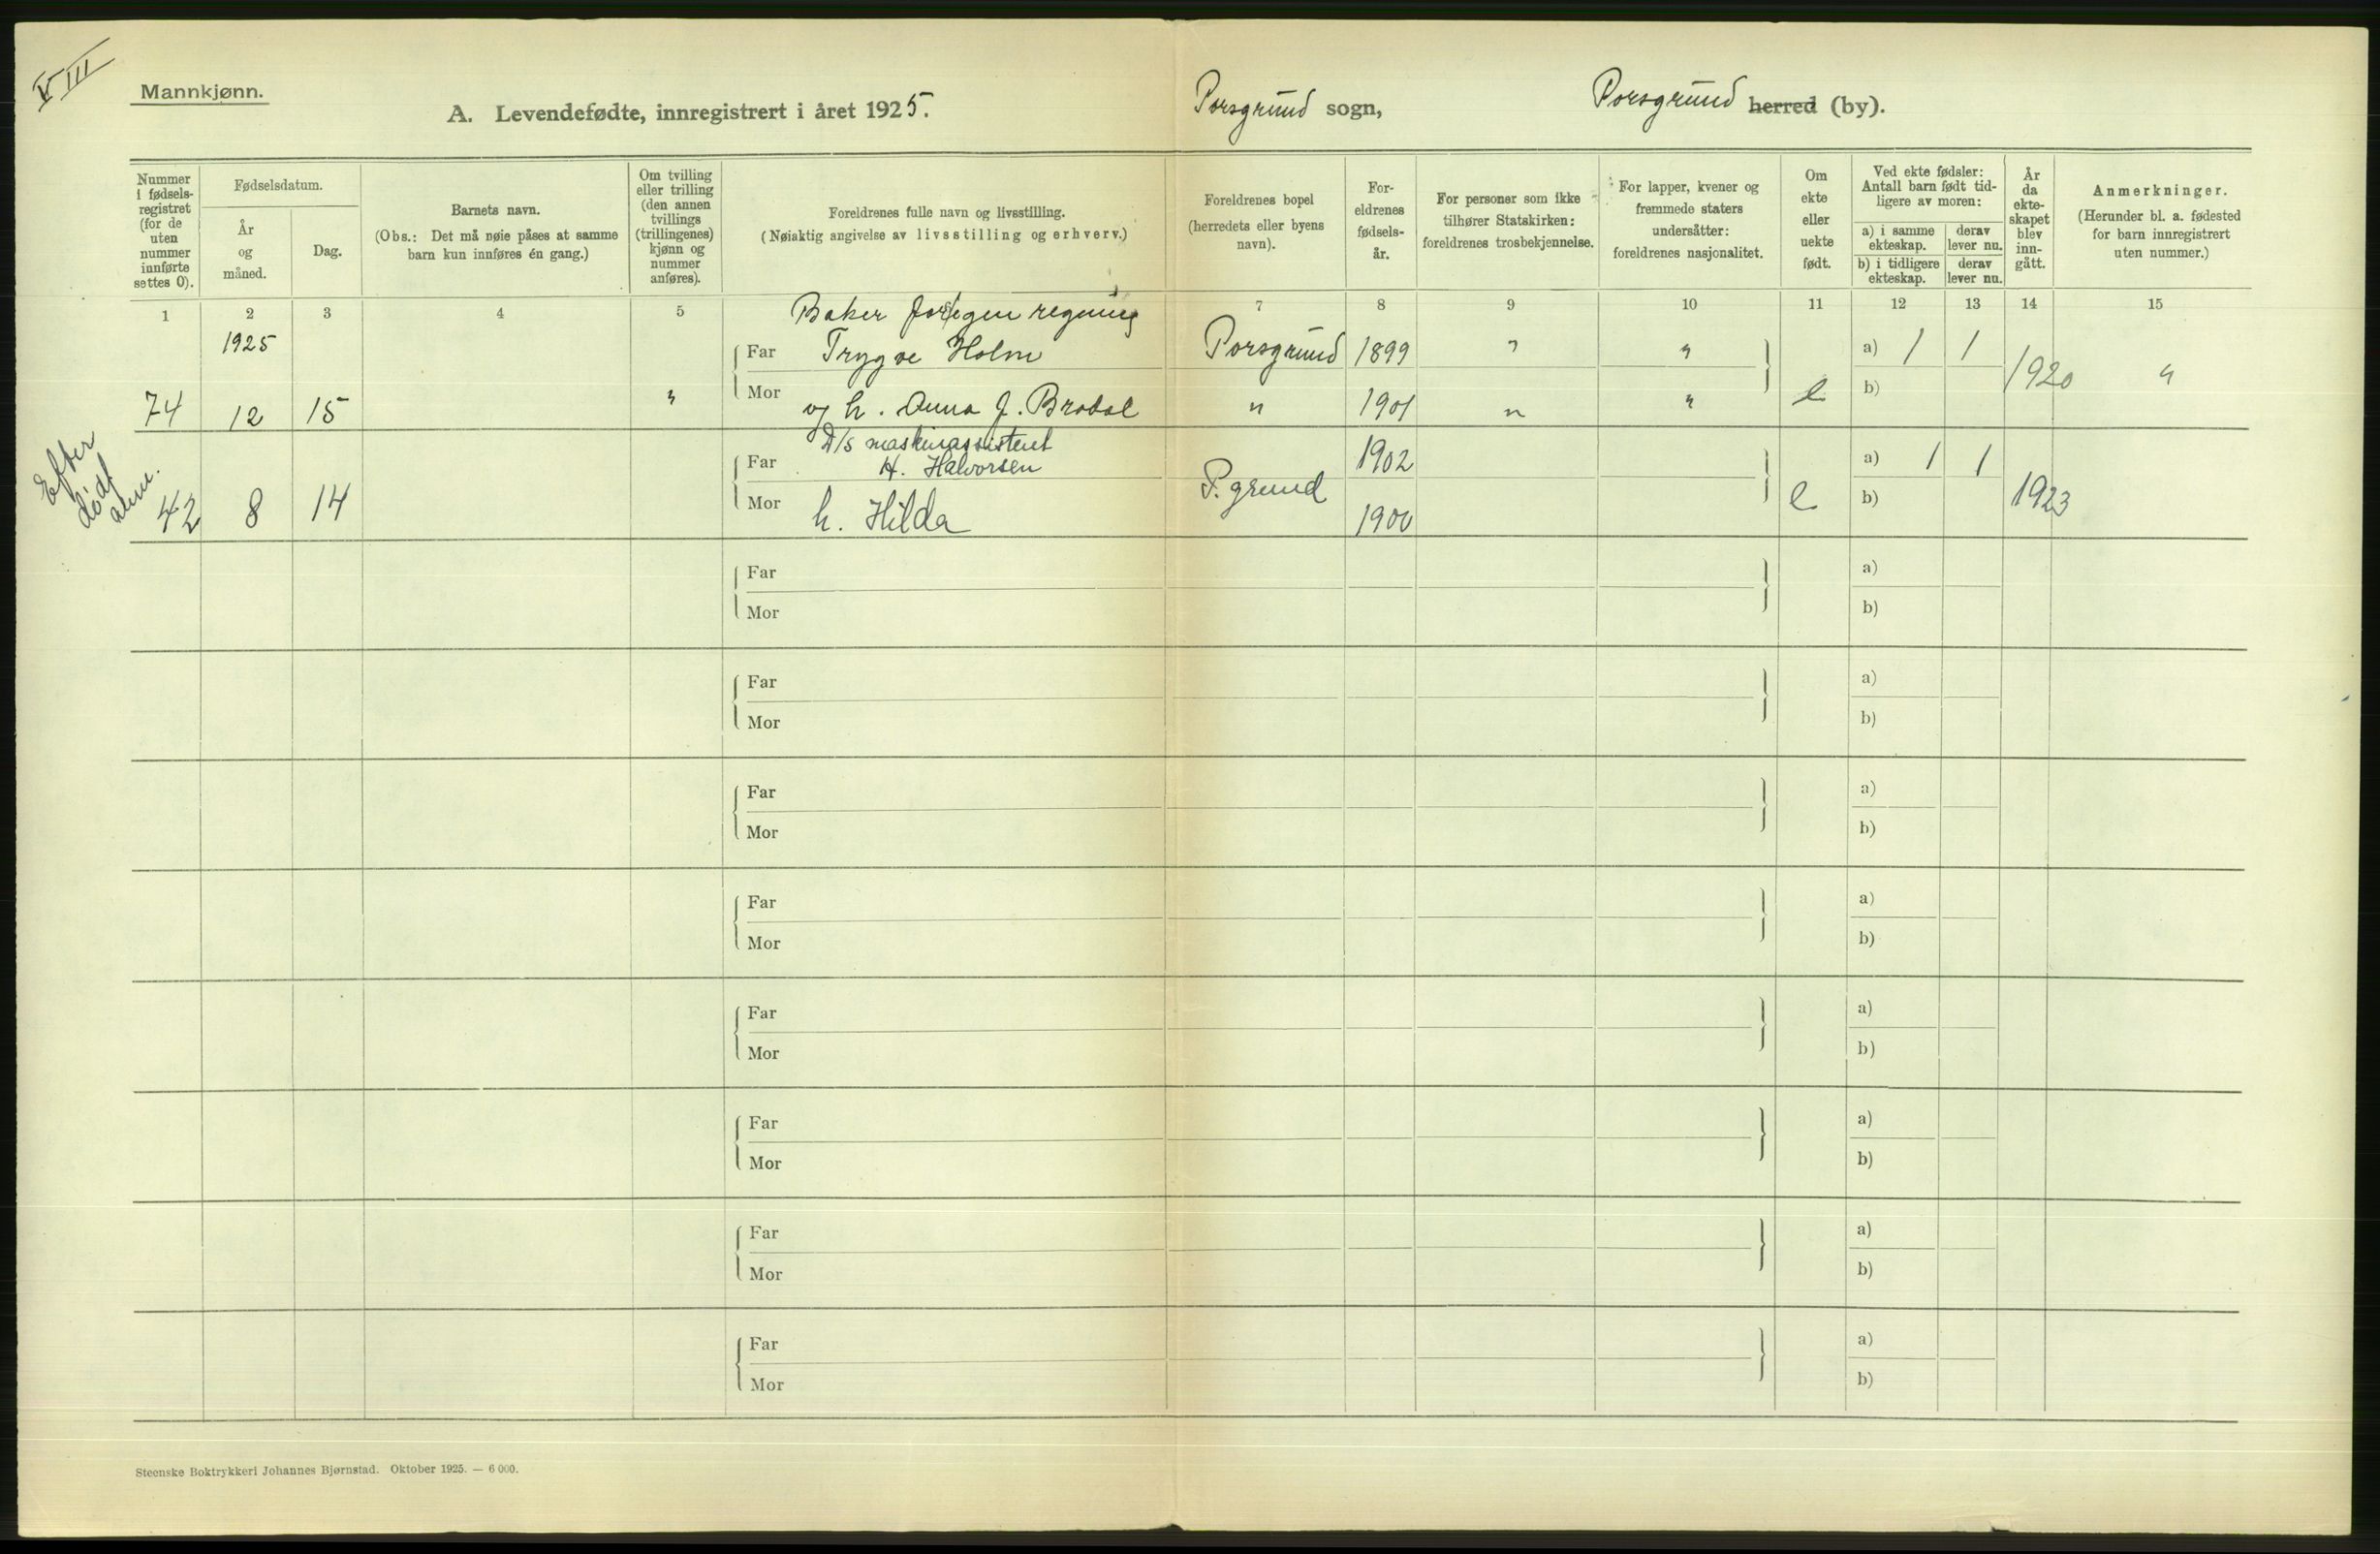 VIII
Mannkjønn.
A. Levendefødte, innregistrert i året 1925.
Porsgrund sogn,
Porsgrund herred (by).
Nummer i fødsels-registret (for de uten nummer innførte settes 0).
Fødselsdatum.
År og måned.
Dag.
Barnets navn.
(Obs.: Det må nøie påses at samme barn kun innføres én gang.)
Om tvilling eller trilling (den annen tvillings (trillingenes) kjønn og nummer anføres).
Foreldrenes fulle navn og livsstilling.
(Nøiaktig angivelse av livsstilling og erhverv.)
Foreldrenes bopel (herredets eller byens navn).
For-eldrenes fødsels-år.
For personer som ikke tilhører Statskirken: foreldrenes trosbekjennelse.
For lapper, kvener og fremmede staters undersåtter: foreldrenes nasjonalitet.
Om ekte eller uekte født.
Ved ekte fødsler: Antall barn født tid-ligere av moren:
a) i samme ekteskap.
derav lever nu.
b) i tidligere ekteskap.
derav lever nu.
År da ekte-skapet blev inn-gått.
Anmerkninger.
(Herunder bl. a. fødested for barn innregistrert uten nummer.)
1 2 3 4 5 7 8 9 10 11 12 13 14 15
Baker for egen regning
1925
Far Trygve Holm Porsgrund 1899 " " a) 1 1
74 12 15 " Mor og h. Anna J. Brodal " 1901 " " e b) 1920 "
D/s maskinassistent
Far H. Halvorsen P.grund 1902 a) 1 1
Efter
dødf
anm.
42 8 14 Mor h. Hilda 1900 e b) 1923
Far a)
Mor b)
Far a)
Mor b)
Far a)
Mor b)
Far a)
Mor b)
Far a)
Mor b)
Far a)
Mor b)
Far a)
Mor b)
Far a)
Mor b)
Steenske Boktrykkeri Johannes Bjørnstad. Oktober 1925. — 6 000.